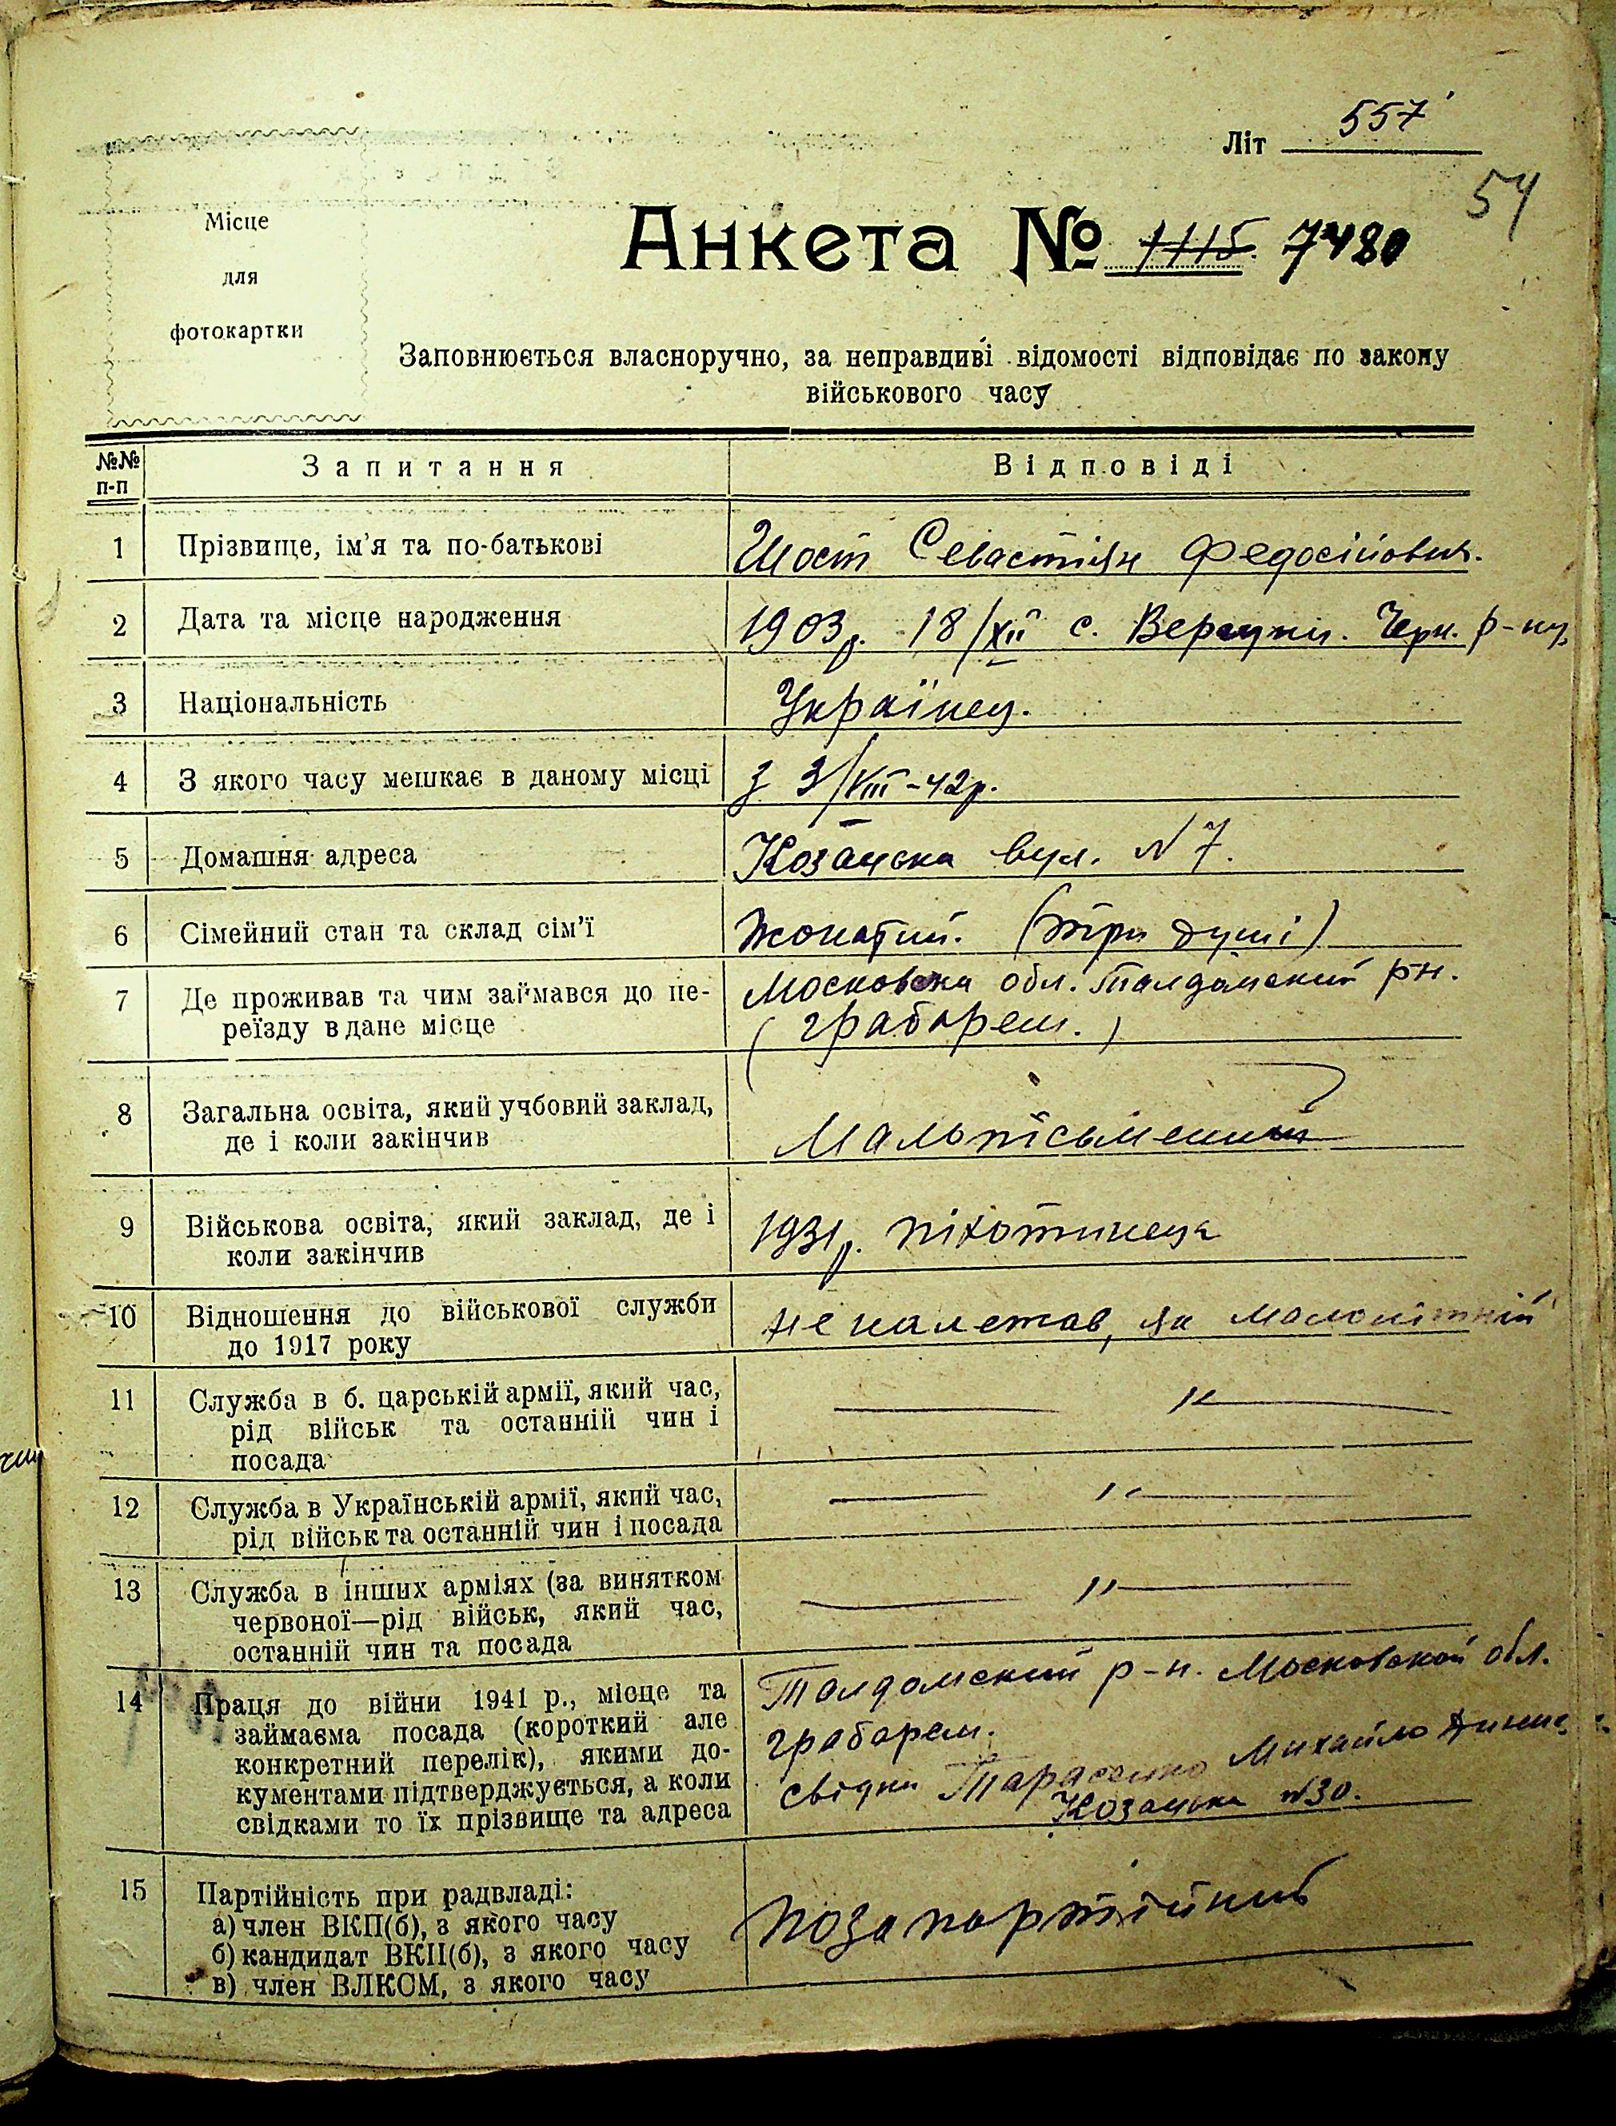 Літ 557
54
Місце
для
фотокартки
Анкета № 1115. 7480
Заповнюється власноручно, за неправдиві відомості відповідає по закону
військового часу
№№ п-п
Запитання
Відповіді
1
Прізвище, ім'я та по-батькові
Шост Севастіян Федосійович.
2
Дата та місце народження
1903р. 18/XII с. Черн. р-ну
3
Національність
Українец.
4
З якого часу мешкає в даному місці
з 3/VIII-42р.
5
Домашня адреса
Козацька вул. N 7.
6
Сімейний стан та склад сім'ї
Жонатий. (три душі)
7
Де проживав та чим займався до пе-
реїзду в дане місце
Московска обл. Талдомский р-н.
(грабарем.)
8
Загальна освіта, який учбовий заклад,
де і коли закінчив
Малопісьменний
9
Військова освіта, який заклад, де і
коли закінчив
1931р. піхотинець
10
Відношення до військової служби
до 1917 року
не належав, як малолітній
11
Служба в б. царській армії, який час,
рід військ та останній чин і
посада
— " —
12
Служба в Українській армії, який час,
рід військ та останній чин і посада
— " —
13
Служба в інших арміях (за винятком
червоної—рід військ, який час,
останній чин та посада
— " —
14
Праця до війни 1941 р., місце та
займаєма посада (короткий але
конкретний перелік), якими до-
кументами підтверджується, а коли
свідками то їх прізвище та адреса
Талдомский р-н. Московской обл.
грабарем.
свідки Тарасенко Михайло
Козацька N30.
15
Партійність при радвладі:
а) член ВКП(б), з якого часу
б) кандидат ВКП(б), з якого часу
в) член ВЛКСМ, з якого часу
позапартійний